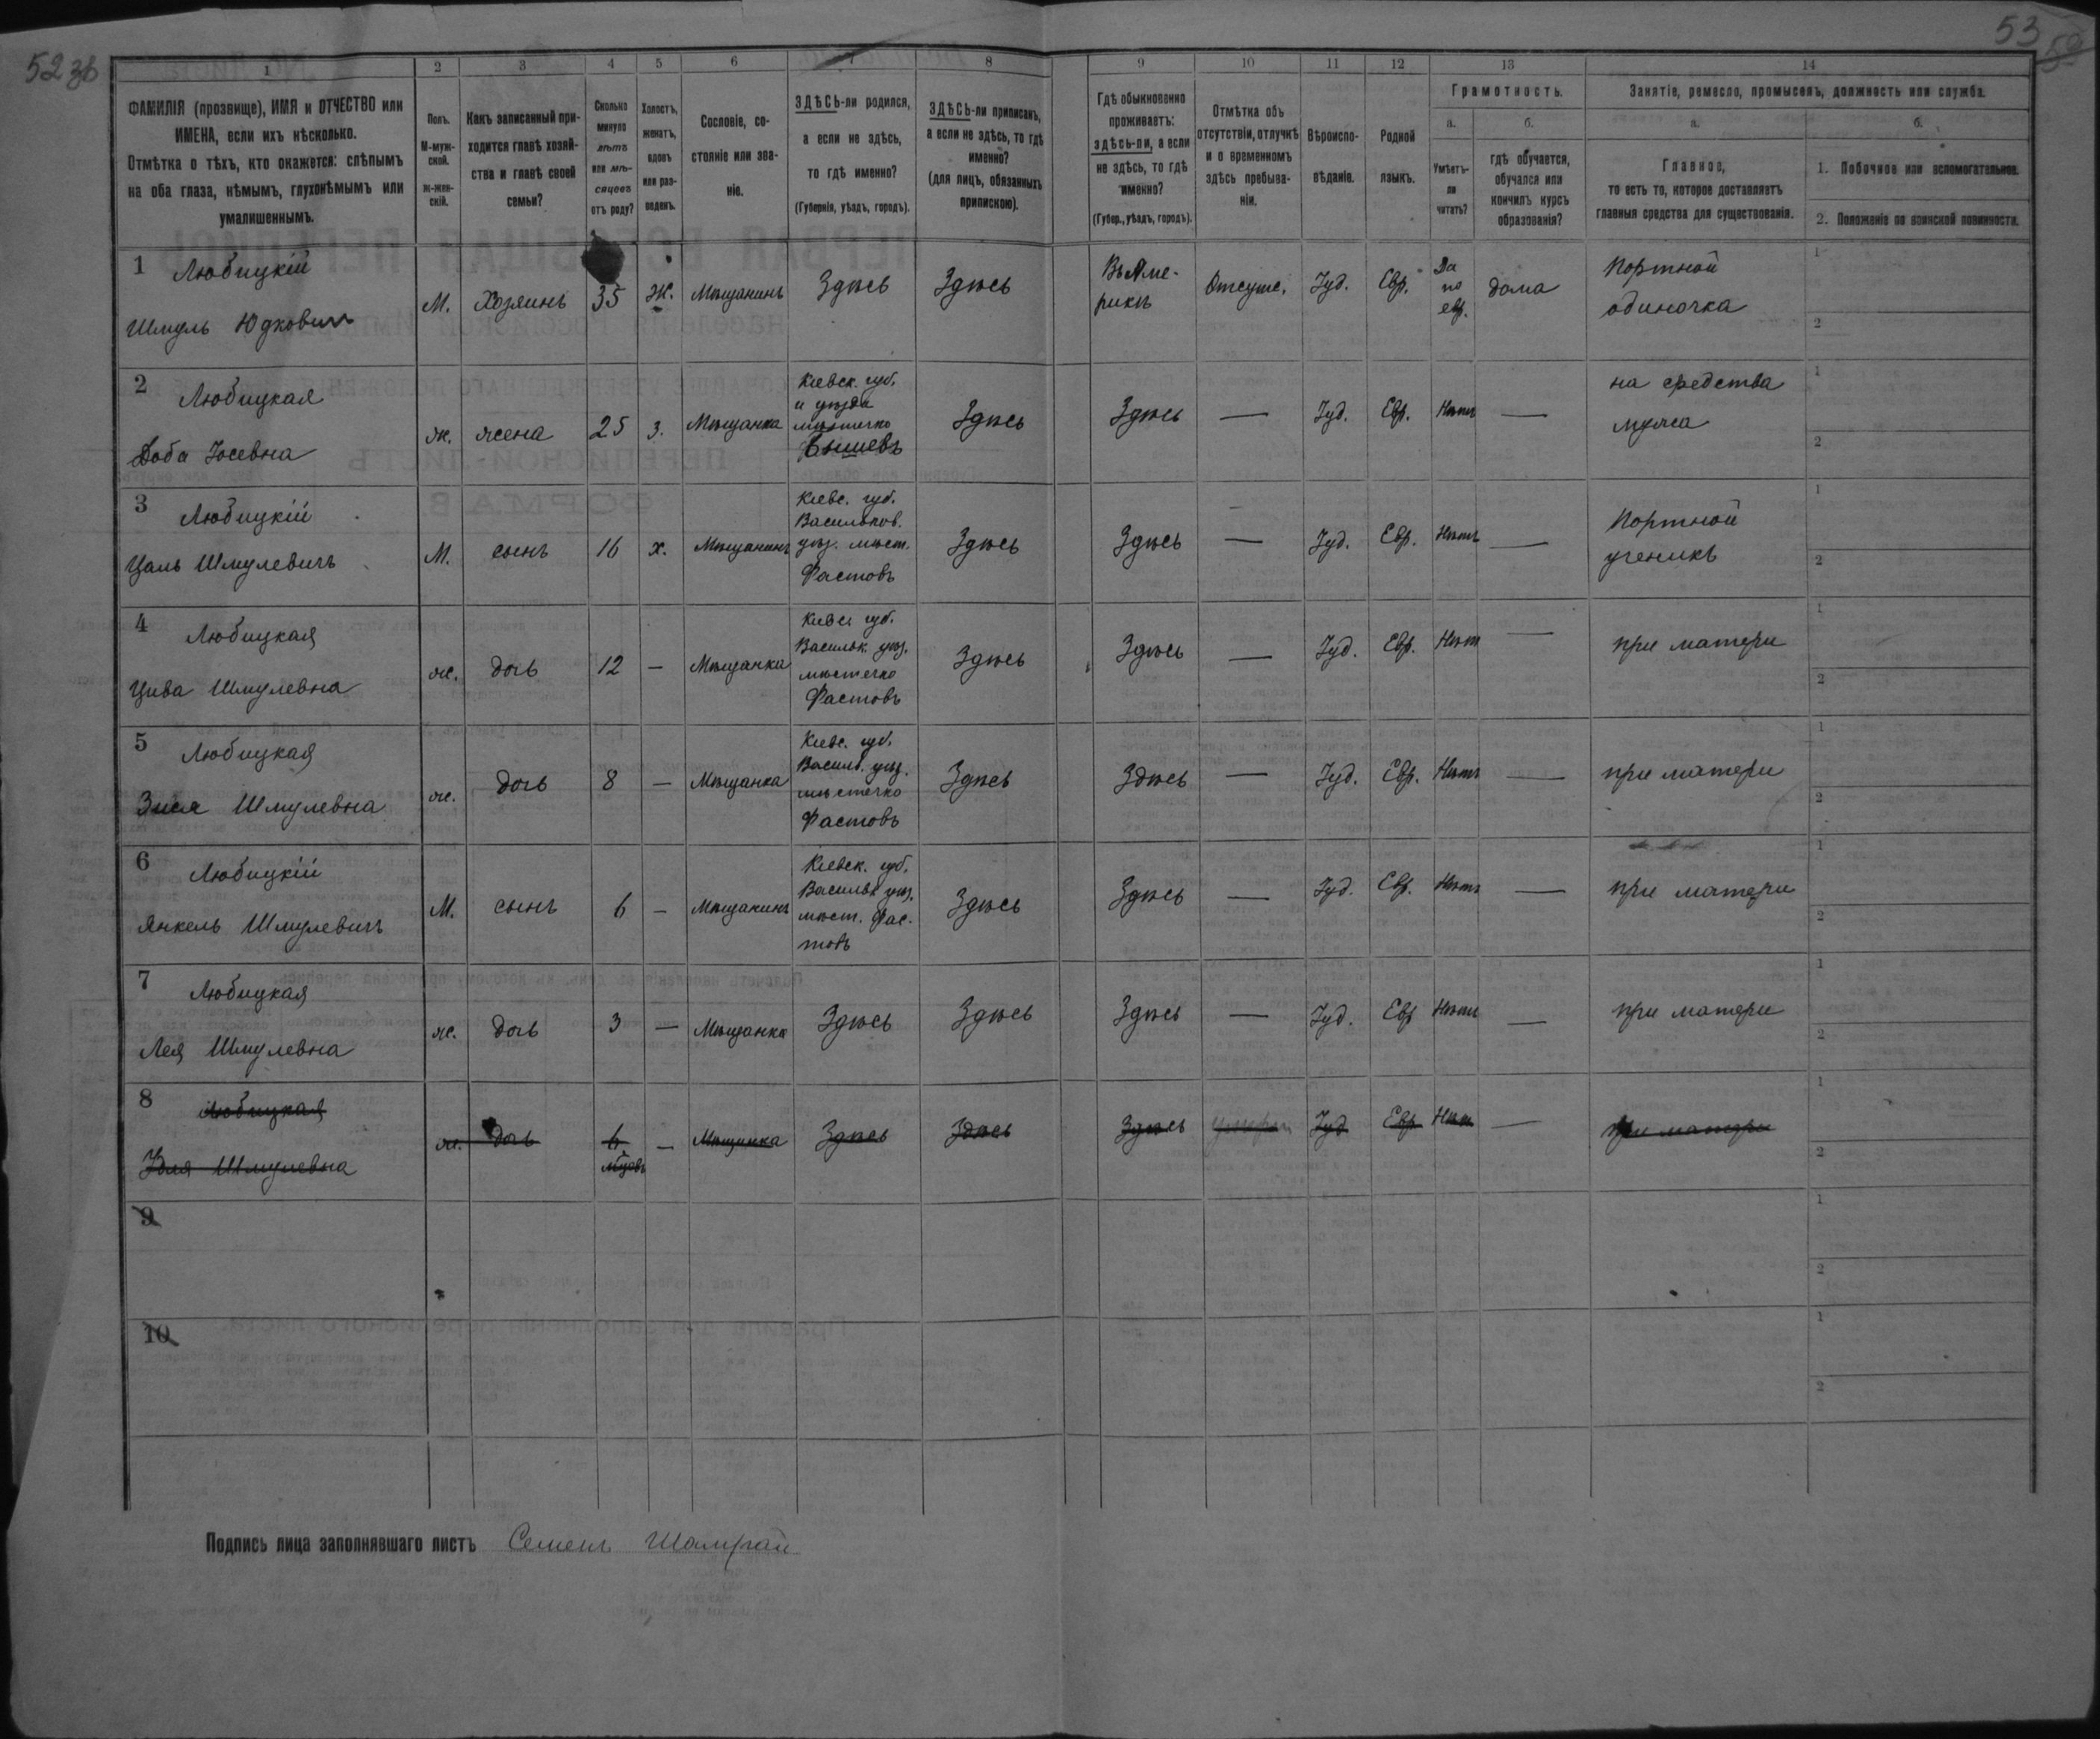 52 зв
53
1 2 3 4 5 6 7 8 9 10 11 12 13 14
ФАМИЛІЯ (прозвище), ИМЯ и ОТЧЕСТВО или
ИМЕНА, если ихъ нѣсколько.
Отмѣтка о тѣхъ, кто окажется: слѣпымъ
на оба глаза, нѣмымъ, глухонѣмымъ или
умалишеннымъ.
Полъ.
М-муж-
ской.
ж-жен-
скій.
Какъ записанный при-
ходится главѣ хозяй-
ства и главѣ своей
семьи?
Сколько
минуло
лѣтъ
или мѣ-
сяцевъ
отъ роду?
Холостъ,
женатъ,
вдовъ
или раз-
веденъ.
Сословіе, со-
стояніе или зва-
ніе.
ЗДѢСЬ-ли родился,
а если не здѣсь,
то гдѣ именно?
(Губернія, уѣздъ, городъ).
ЗДѢСЬ-ли приписанъ,
а если не здѣсь, то гдѣ
именно?
(для лицъ, обязанныхъ
припискою).
Гдѣ обыкновенно
проживаетъ:
здѣсь-ли, а если
не здѣсь, то гдѣ
именно?
(Губер., уѣздъ, городъ).
Отмѣтка объ
отсутствіи, отлучкѣ
и о временномъ
здѣсь пребыва-
ніи.
Вѣроиспо-
вѣданіе.
Родной
языкъ.
Грамотность.
а.
Умѣетъ-
ли
читать?
б.
гдѣ обучается,
обучался или
кончилъ курсъ
образованія?
Занятіе, ремесло, промыселъ, должность или служба.
а.
Главное,
то есть то, которое доставляетъ
главныя средства для существованія.
б.
1. Побочное или вспомогательное.
2. Положеніе по воинской повинности.
1 Любицкій
Шмуль Юдковичъ
М.
Хозяинъ
35
Ж.
Мѣщанинъ
Здѣсь
Здѣсь
Въ Аме-
рикѣ
Отсутс.
Іуд.
Евр.
Да
по
евр.
дома
Портной
одиночка
1
2
2 Любицкая
Доба Іосевна
ж.
жена
25
з.
Мѣщанка
Кіевск. губ.
и уѣзда
мѣстечко
Бышевъ
Здѣсь
Здѣсь
—
Іуд.
Евр.
Нѣтъ
—
на средства
мужа
1
2
3 Любицкій
Цаль Шмулевичъ
М.
сынъ
16
х.
Мѣщанинъ
Кіевс. губ.
Васильков.
уѣз. мѣст.
Фастовъ
Здѣсь
Здѣсь
—
Іуд.
Евр.
Нѣтъ
—
Портной
ученикъ
1
2
4 Любицкая
Цива Шмулевна
ж.
дочь
12
—
Мѣщанка
Кіевс. губ.
Васильк. уѣз.
мѣстечко
Фастовъ
Здѣсь
Здѣсь
—
Іуд.
Евр.
Нѣтъ
—
при матери
1
2
5 Любицкая
Зися Шмулевна
ж.
дочь
8
—
Мѣщанка
Кіевс. губ.
Васильк. уѣз.
мѣстечко
Фастовъ
Здѣсь
Здѣсь
—
Іуд.
Евр.
Нѣтъ
—
при матери
1
2
6 Любицкій
Янкель Шмулевичъ
М.
сынъ
6
—
Мѣщанинъ
Кіевск. губ.
Васильк. уѣз.
мѣст. Фас-
товъ
Здѣсь
Здѣсь
—
Іуд.
Евр.
Нѣтъ
—
при матери
1
2
7 Любицкая
Лея Шмулевна
ж.
дочь
3
—
Мѣщанка
Здѣсь
Здѣсь
Здѣсь
—
Іуд.
Евр
Нѣтъ
—
при матери
1
2
8 Любицкая
Шмулевна
ж.
дочь
6
мѣсяцовъ
—
Мѣщанка
Здѣсь
Здѣсь
Здѣсь
Іуд
Евр
Нѣтъ
—
при матери
1
2
9
1
2
10
1
2
Подпись лица заполнявшаго листъ Семенъ Шамрай